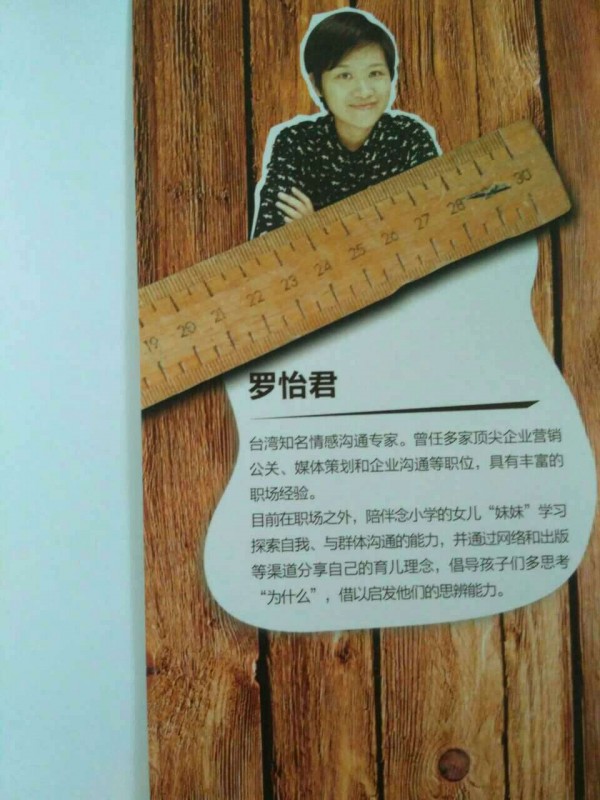 19 20 21 22 23 24 25 26 27 28 30
罗怡君
台湾知名情感沟通专家。曾任多家顶尖企业营销
公关、媒体策划和企业沟通等职位，具有丰富的
职场经验。
目前在职场之外，陪伴念小学的女儿“妹妹”学习
探索自我、与群体沟通的能力，并通过网络和出版
等渠道分享自己的育儿理念，倡导孩子们多思考
“为什么”，借以启发他们的思辨能力。